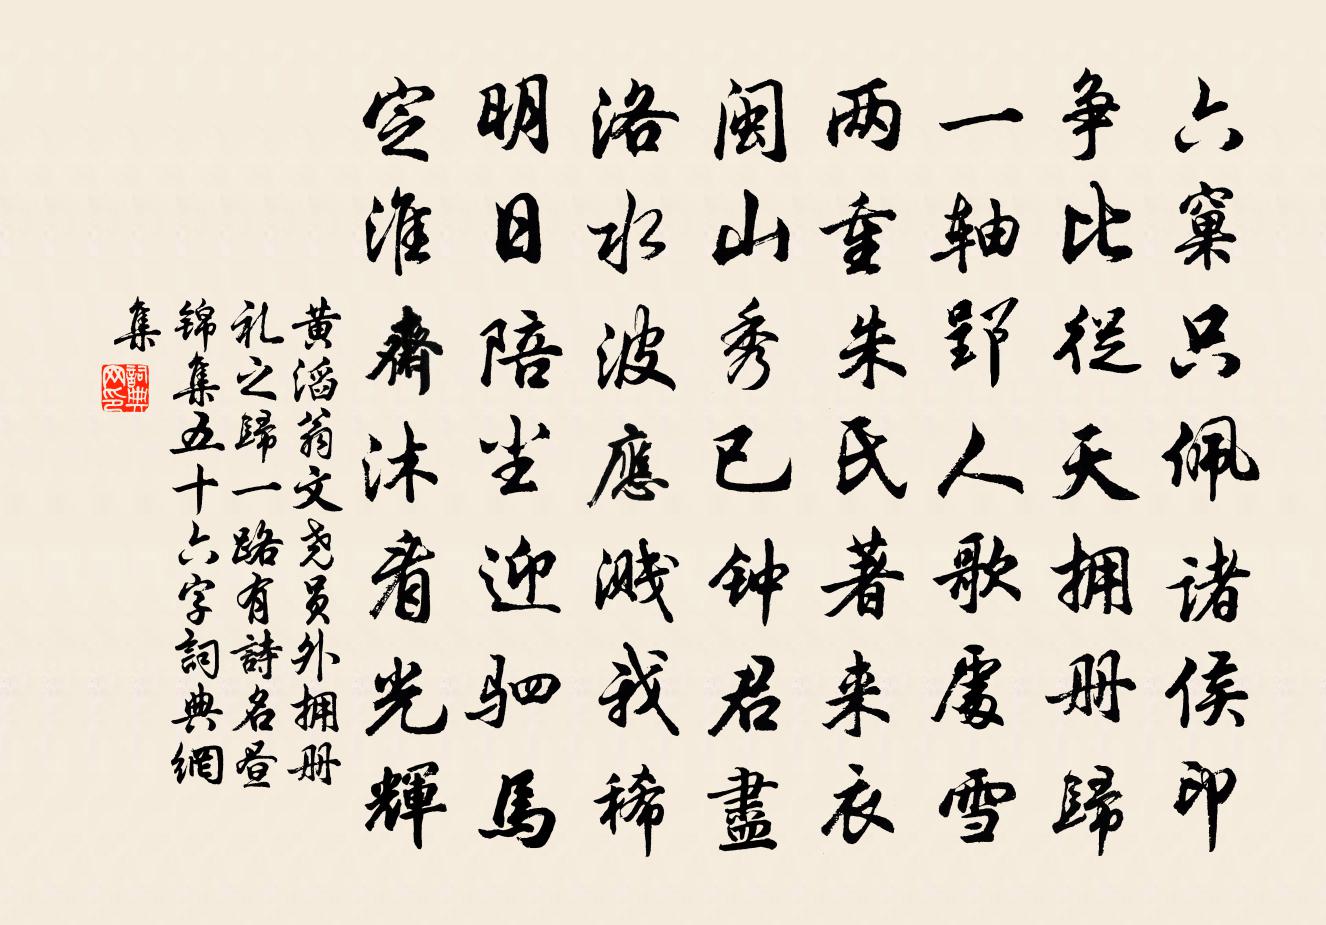 六窠只佩诸侯印
争比從天拥册歸
一轴郢人歌處雪
两重朱氏著来衣
闽山秀已钟君盡
洛水波應溅我稀
明日陪尘迎驷馬
定淮齋沐看光輝
黄滔翁文尧员外拥册
礼之歸一路有詩名昼
锦集五十六字詞典網
集
詞典网印